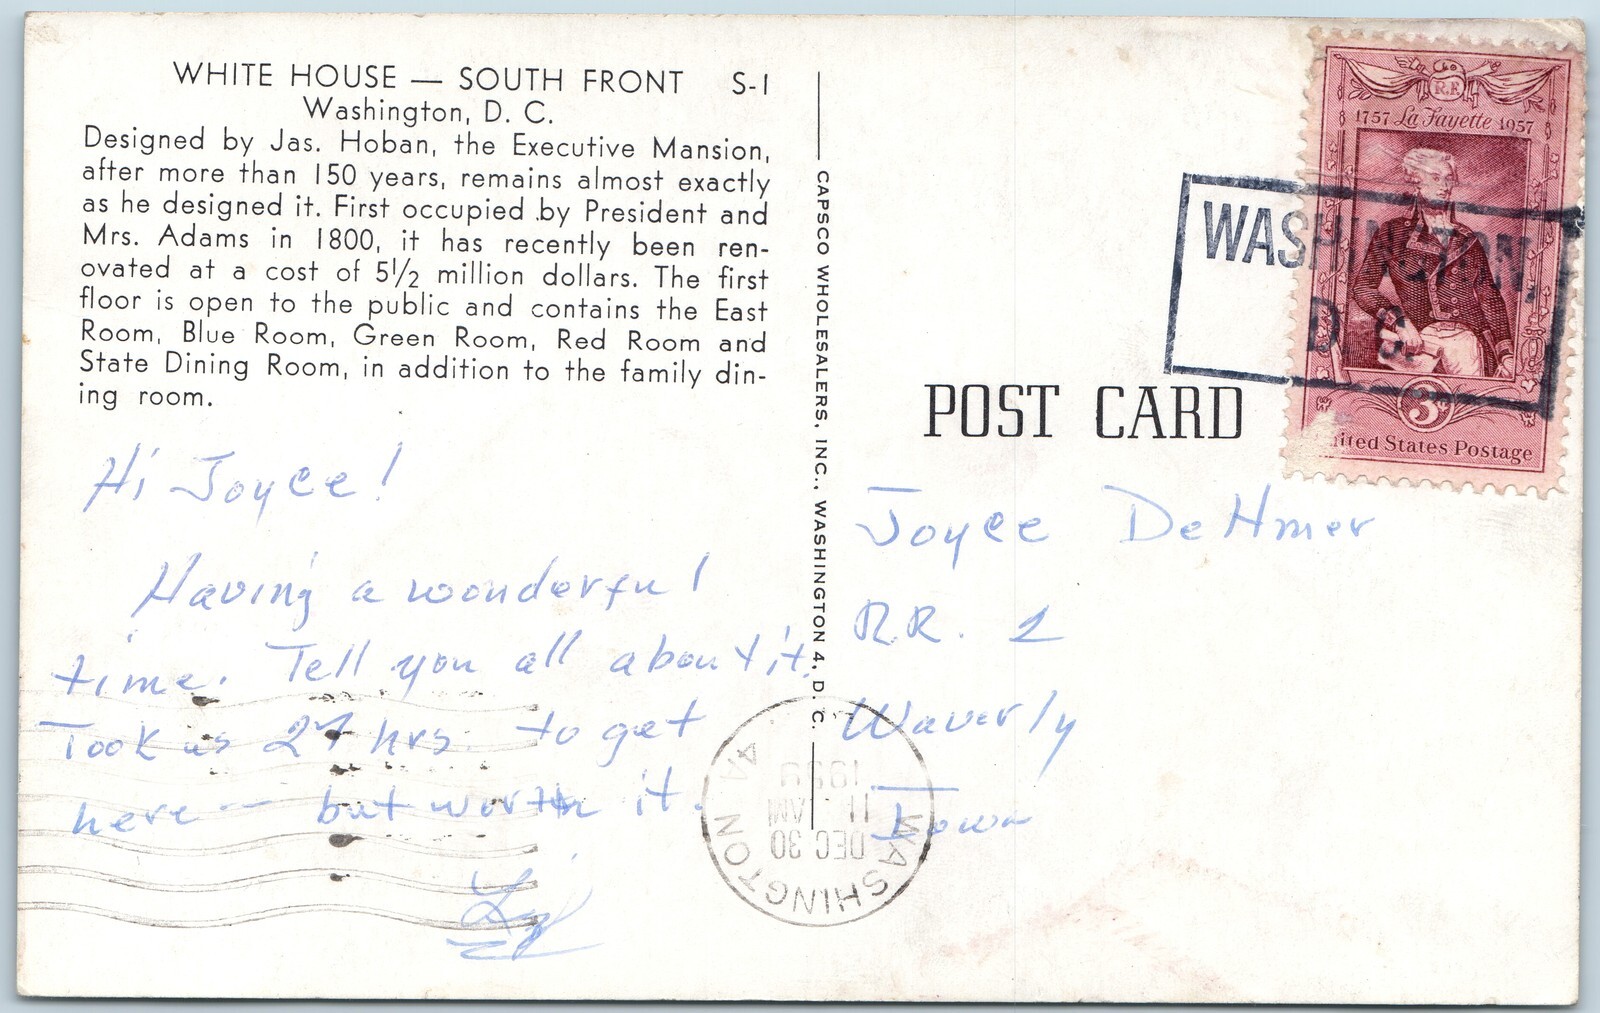 WHITE HOUSE — SOUTH FRONT S-1
Washington, D. C.
Designed by Jas. Hoban, the Executive Mansion,
after more than 150 years, remains almost exactly
as he designed it. First occupied by President and
Mrs. Adams in 1800, it has recently been ren-
ovated at a cost of 5½ million dollars. The first
floor is open to the public and contains the East
Room, Blue Room, Green Room, Red Room and
State Dining Room, in addition to the family din-
ing room.
Hi Joyce!
Having a wonderful
time. Tell you all about it.
Took us 27 hrs. to get
here — but worth it.
CAPSCO WHOLESALERS, INC., WASHINGTON 4, D. C.
R.F.
1757 La Fayette 1957
3¢
United States Postage
WASHINGTON,
D. C.
POST CARD
Joyce DeHmer
R.R. 1
Waverly
Iowa
WASHINGTON
DEC 30
11 AM